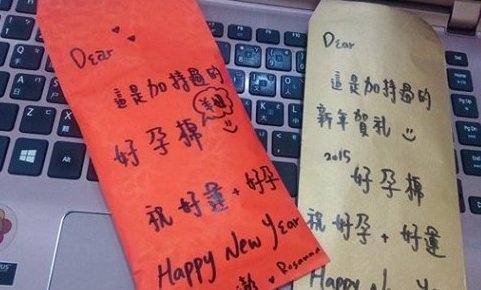 Dear
這是加持過的
美妞
好孕棉
祝好運+好孕
Happy New Year
Rosanna
Dear
這是加持過的
新年賀禮
2015
好孕棉
祝好孕+好運
Happy New Year